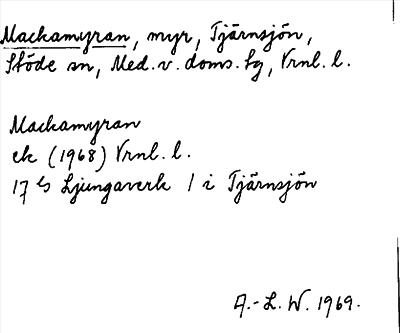 Mackamyran, myr, Tjärnsjön,
Stöde sn, Med. v. doms. tg, Vrnl. l.
Mackamyran
ek (1968) Vrnl. l.
17 Ljungaverk 1 i Tjärnsjön
A.-L. W. 1969.